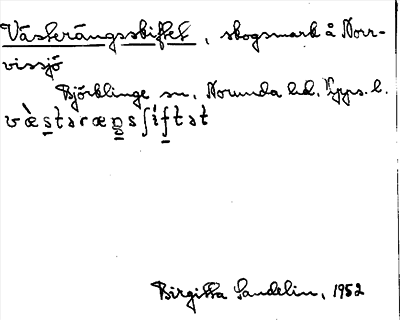 Västerängsskiftet, skogsmark å Norr-
vissjö
Björklinge sn, Norunda hd, Upps. l.
væ̀stəræŋsʃiftət
Birgitta Sandelin, 1952